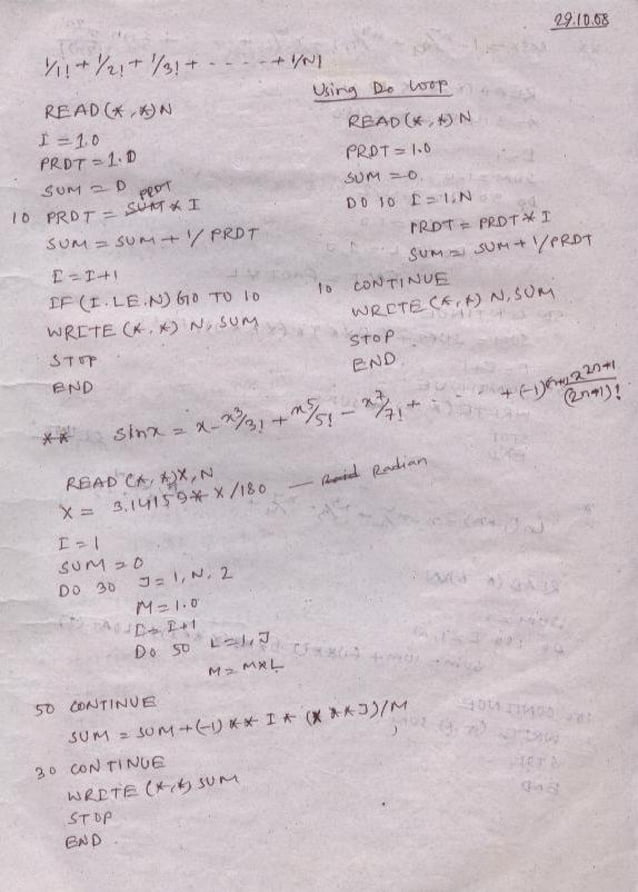 29.10.08
1/1! + 1/2! + 1/3! + - - - - + 1/N!
READ(*,*)N
I = 1.0
PRDT = 1.0
SUM = 0
PRDT
10 PRDT = SUM * I
SUM = SUM + 1/PRDT
I = I+1
IF (I.LE.N) GO TO 10
WRITE (*,*) N, SUM
STOP
END
Using Do loop
READ(*,*) N
PRDT = 1.0
SUM = 0.
DO 10 I = 1,N
PRDT = PRDT * I
SUM = SUM + 1/PRDT
10 CONTINUE
WRITE (*,*) N, SUM
STOP
END
** sinx = x - x³/3! + x⁵/5! - x⁷/7! + - - - + (-1)ⁿ⁺¹ x²ⁿ⁺¹/(2n+1)!
READ (*,*)X,N
X = 3.14159 * X/180 — Radian
I = 1
SUM = 0
DO 30 J = 1, N, 2
M = 1.0
I = I+1
DO 50 L = 1, J
M = M*L
50 CONTINUE
SUM = SUM + (-1) ** I * (X ** J)/M
30 CONTINUE
WRITE (*,*) SUM
STOP
END